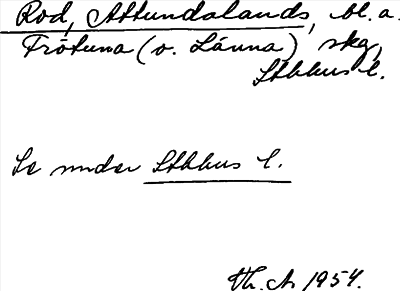 Rod, Attundalands, bl. a.
Frötuna (o. Länna) skg,
Sthhus l.
Se under Sthhus l.
Vh. A. 1954.